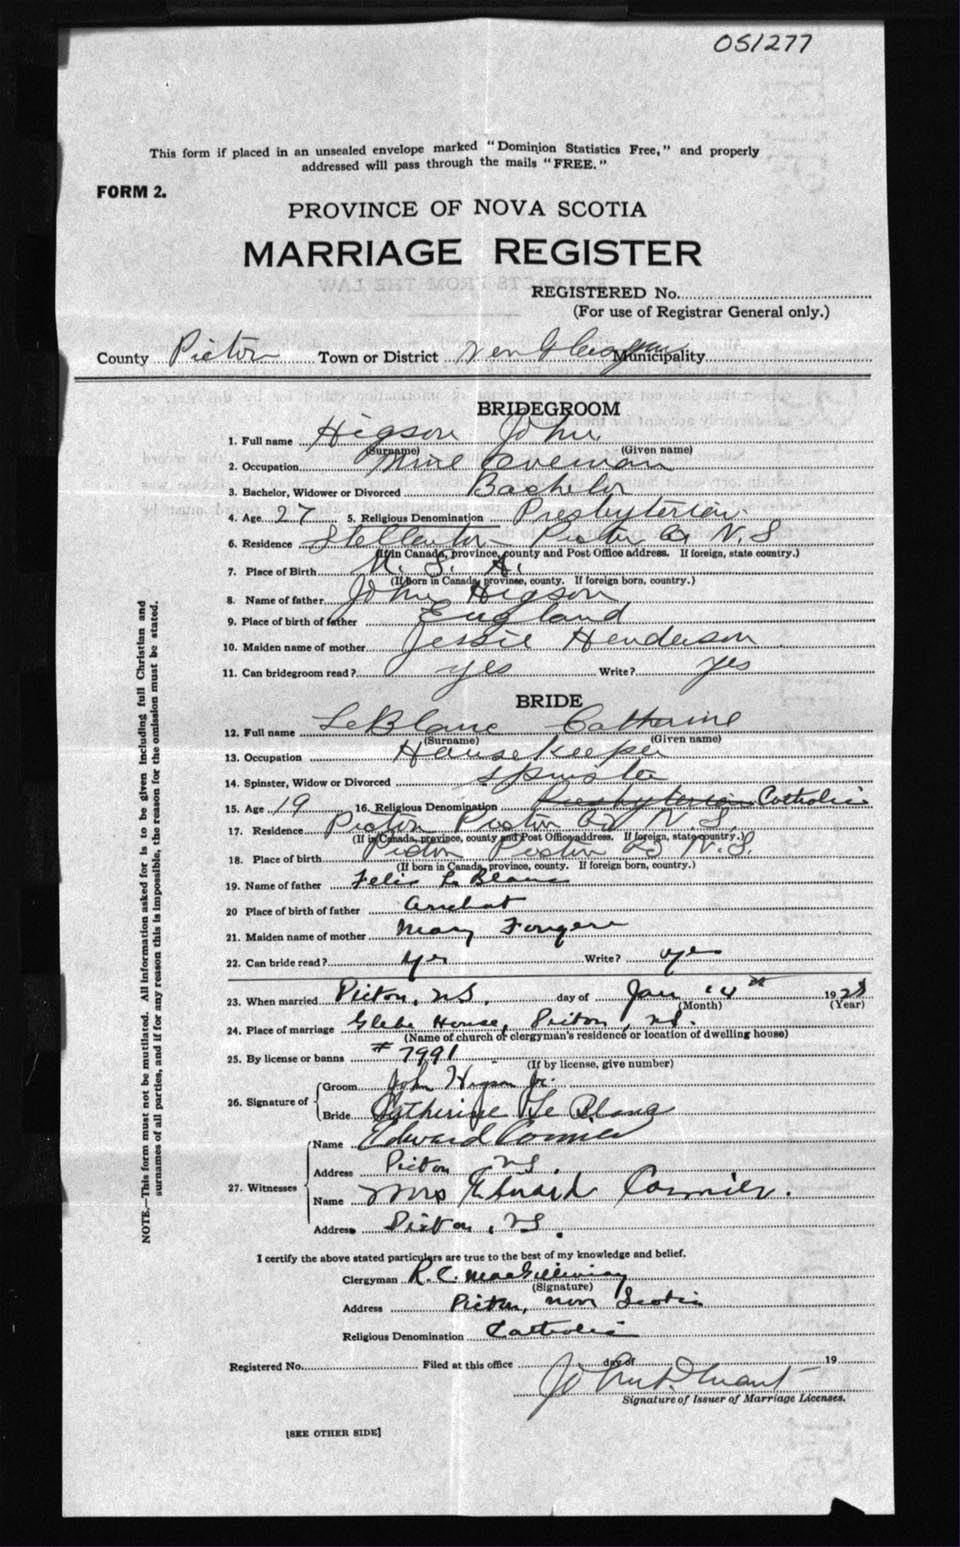 051277
This form if placed in an unsealed envelope marked "Dominion Statistics Free," and properly
addressed will pass through the mails "FREE."
FORM 2.
PROVINCE OF NOVA SCOTIA
MARRIAGE REGISTER
REGISTERED No.
(For use of Registrar General only.)
County Pictou Town or District New Glasgow Municipality
BRIDEGROOM
1. Full name Higson John
(Surname) (Given name)
2. Occupation Mine
3. Bachelor, Widower or Divorced Bachelor
4. Age 27 5. Religious Denomination Presbyterian
6. Residence Stellarton Pictou Co N.S
(If in Canada, province, county and Post Office address. If foreign, state country.)
7. Place of Birth U. S. A.
(If born in Canada, province, county. If foreign born, country.)
8. Name of father John Higson
9. Place of birth of father England
10. Maiden name of mother Jessie Henderson
11. Can bridegroom read? yes Write? yes
BRIDE
12. Full name LeBlanc Catherine
(Surname) (Given name)
13. Occupation Housekeeper
14. Spinster, Widow or Divorced spinster
15. Age 19 16. Religious Denomination Presbyterian Catholic
17. Residence Pictou Pictou Co N.S.
(If in Canada, province, county and Post Office address. If foreign, state country.)
18. Place of birth Pictou Pictou Co N.S.
(If born in Canada, province, county. If foreign born, country.)
19. Name of father Felix LeBlanc
20 Place of birth of father Arichat
21. Maiden name of mother Mary Fougere
22. Can bride read? yes Write? yes
23. When married Pictou, N.S. day of Jan 14th 1928
(Month) (Year)
24. Place of marriage Glebe House, Pictou, N.S.
(Name of church or clergyman's residence or location of dwelling house)
25. By license or banns #7991
(If by license, give number)
26. Signature of
Groom John Higson Jr.
Bride Catherine Le Blanc
27. Witnesses
Name Edward Cormier
Address Pictou N.S.
Name Mrs Edward Cormier.
Address Pictou, N.S.
I certify the above stated particulars are true to the best of my knowledge and belief.
Clergyman R. C. MacGillivray
(Signature)
Address Pictou, Nova Scotia
Religious Denomination Catholic
Registered No. Filed at this office day of 19
John D
Signature of Issuer of Marriage Licenses.
[SEE OTHER SIDE]
NOTE.—This form must not be mutilated. All information asked for is to be given including full Christian and
surnames of all parties, and if for any reason this is impossible, the reason for the omission must be stated.